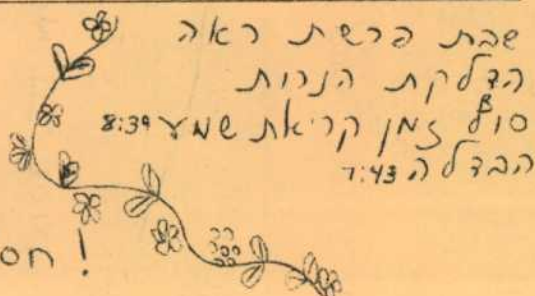 שבת פרשת ראה
הדלקת הנרות
סוף זמן קריאת שמע 8:39
הבדלה 7:43
חס!